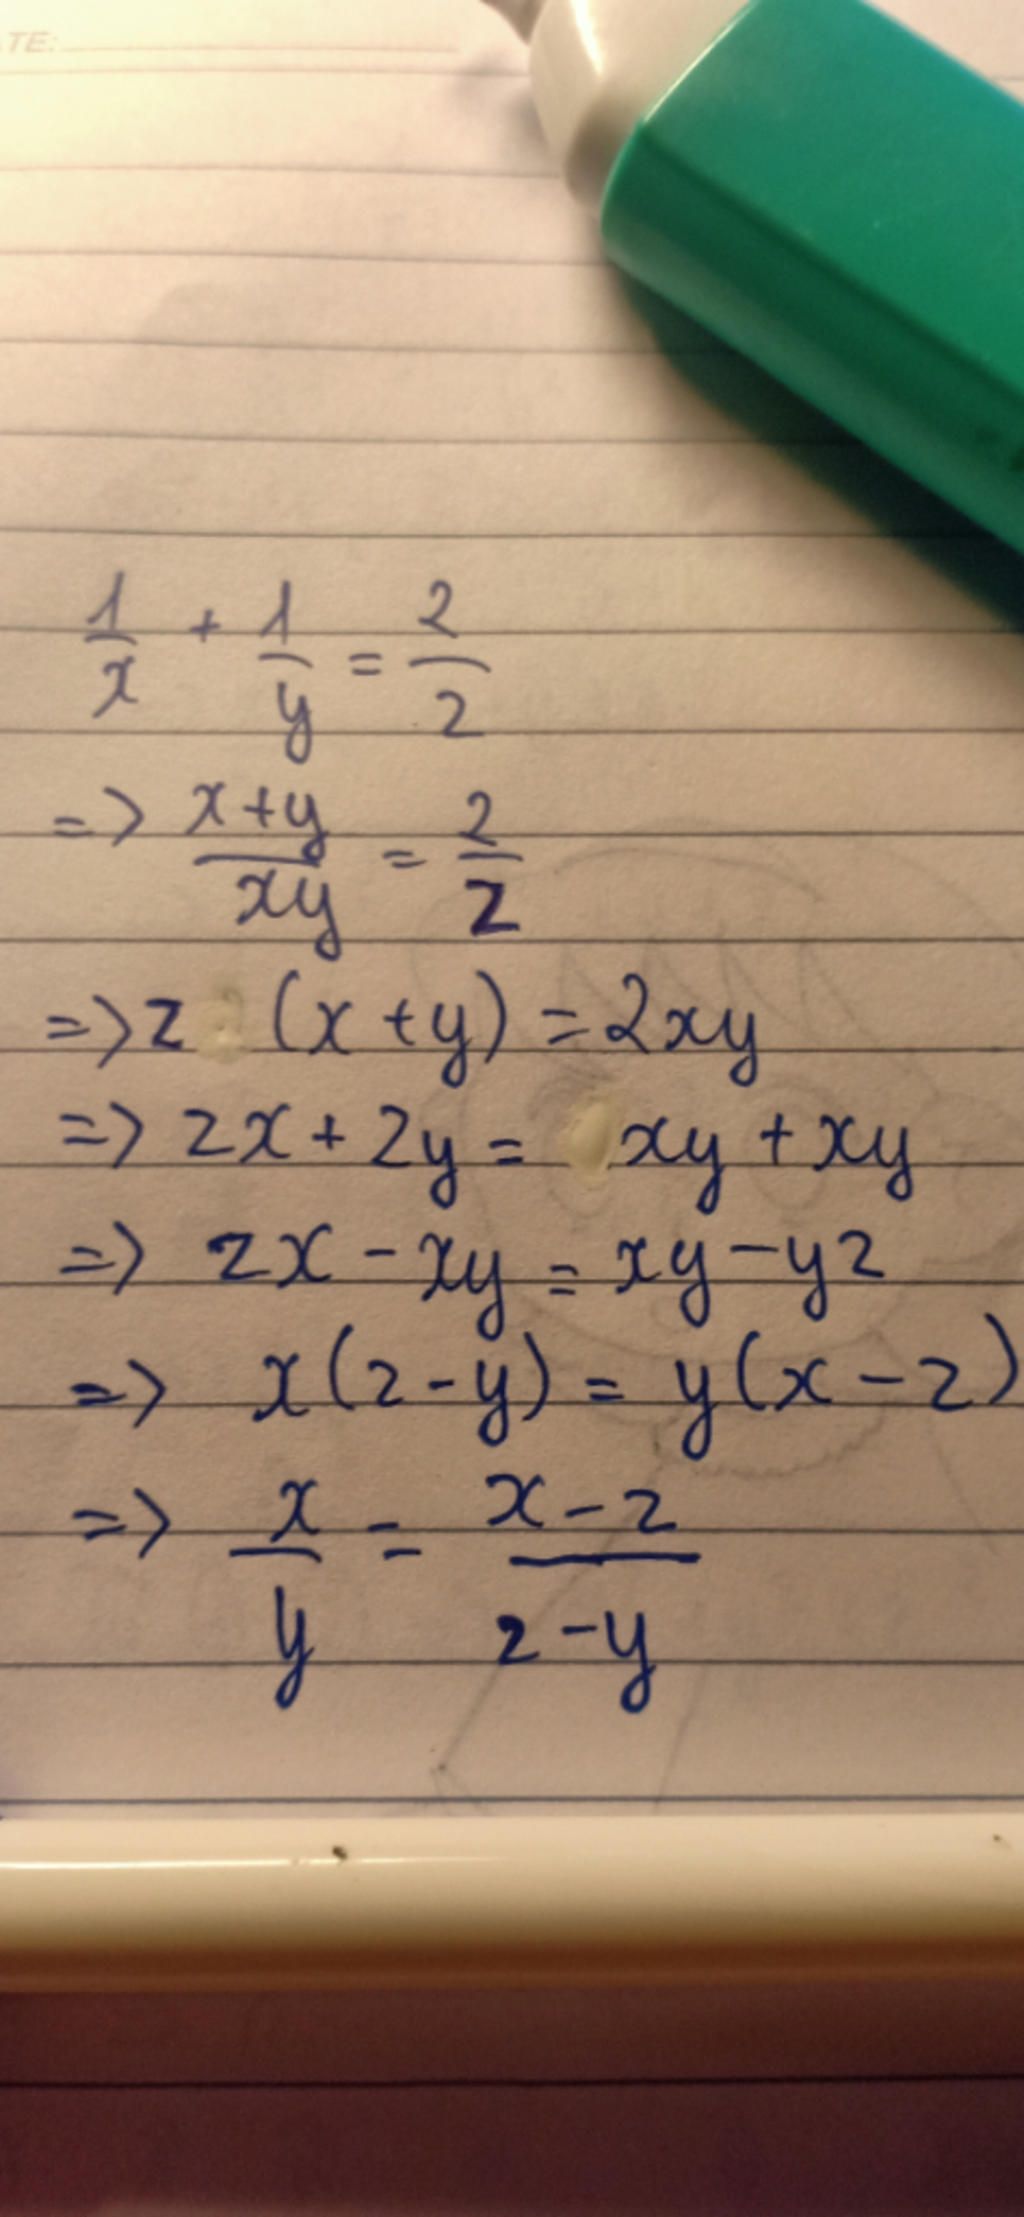 TE:
1/x + 1/y = 2/2
=> (x+y)/(xy) = 2/z
=> z (x+y) = 2xy
=> zx + 2y = xy + xy
=> zx - xy = xy - yz
=> x(z-y) = y(x-z)
=> x/y = (x-z)/(z-y)